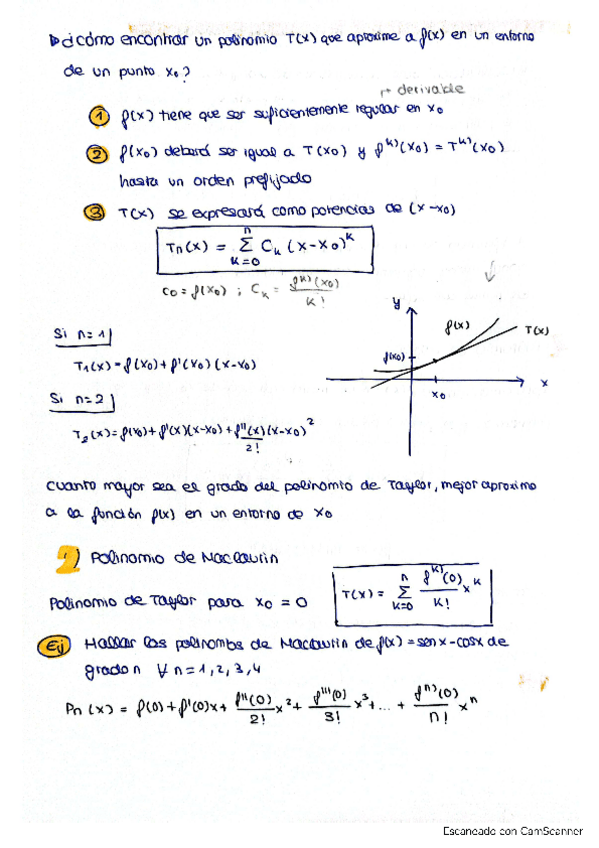 ▷¿cómo encontrar un polinomio T(x) que aproxime a f(x) en un entorno
de un punto x₀?
→ derivable
① f(x) tiene que ser suficientemente regular en x₀
② f(x₀) deberá ser igual a T(x₀) y f^(k)(x₀) = T^(k)(x₀)
hasta un orden prefijado
③ T(x) se expresará como potencias de (x-x₀)
Tn(x) = Σ_{k=0}^{n} C_k (x-x₀)^k
C₀ = f(x₀) ; C_k = f^(k)(x₀) / k!
y
f(x)
T(x)
f(x₀)
x₀
x
Si n=1
T₁(x) = f(x₀) + f'(x₀) (x-x₀)
Si n=2
T₂(x) = f(x₀) + f'(x)(x-x₀) + f''(x)/2! (x-x₀)²
cuanto mayor sea el grado del polinomio de Taylor, mejor aproximo
a la función f(x) en un entorno de x₀
2) Polinomio de Maclaurin
Polinomio de Taylor para x₀ = 0
T(x) = Σ_{k=0}^{n} f^(k)(0)/k! x^k
Ej Hallar los polinomios de Maclaurin de f(x) = senx-cosx de
grado n ∀ n = 1, 2, 3, 4
Pn (x) = f(0) + f'(0)x + f''(0)/2! x² + f'''(0)/3! x³ + ... + f^(n)(0)/n! x^n
Escaneado con CamScanner